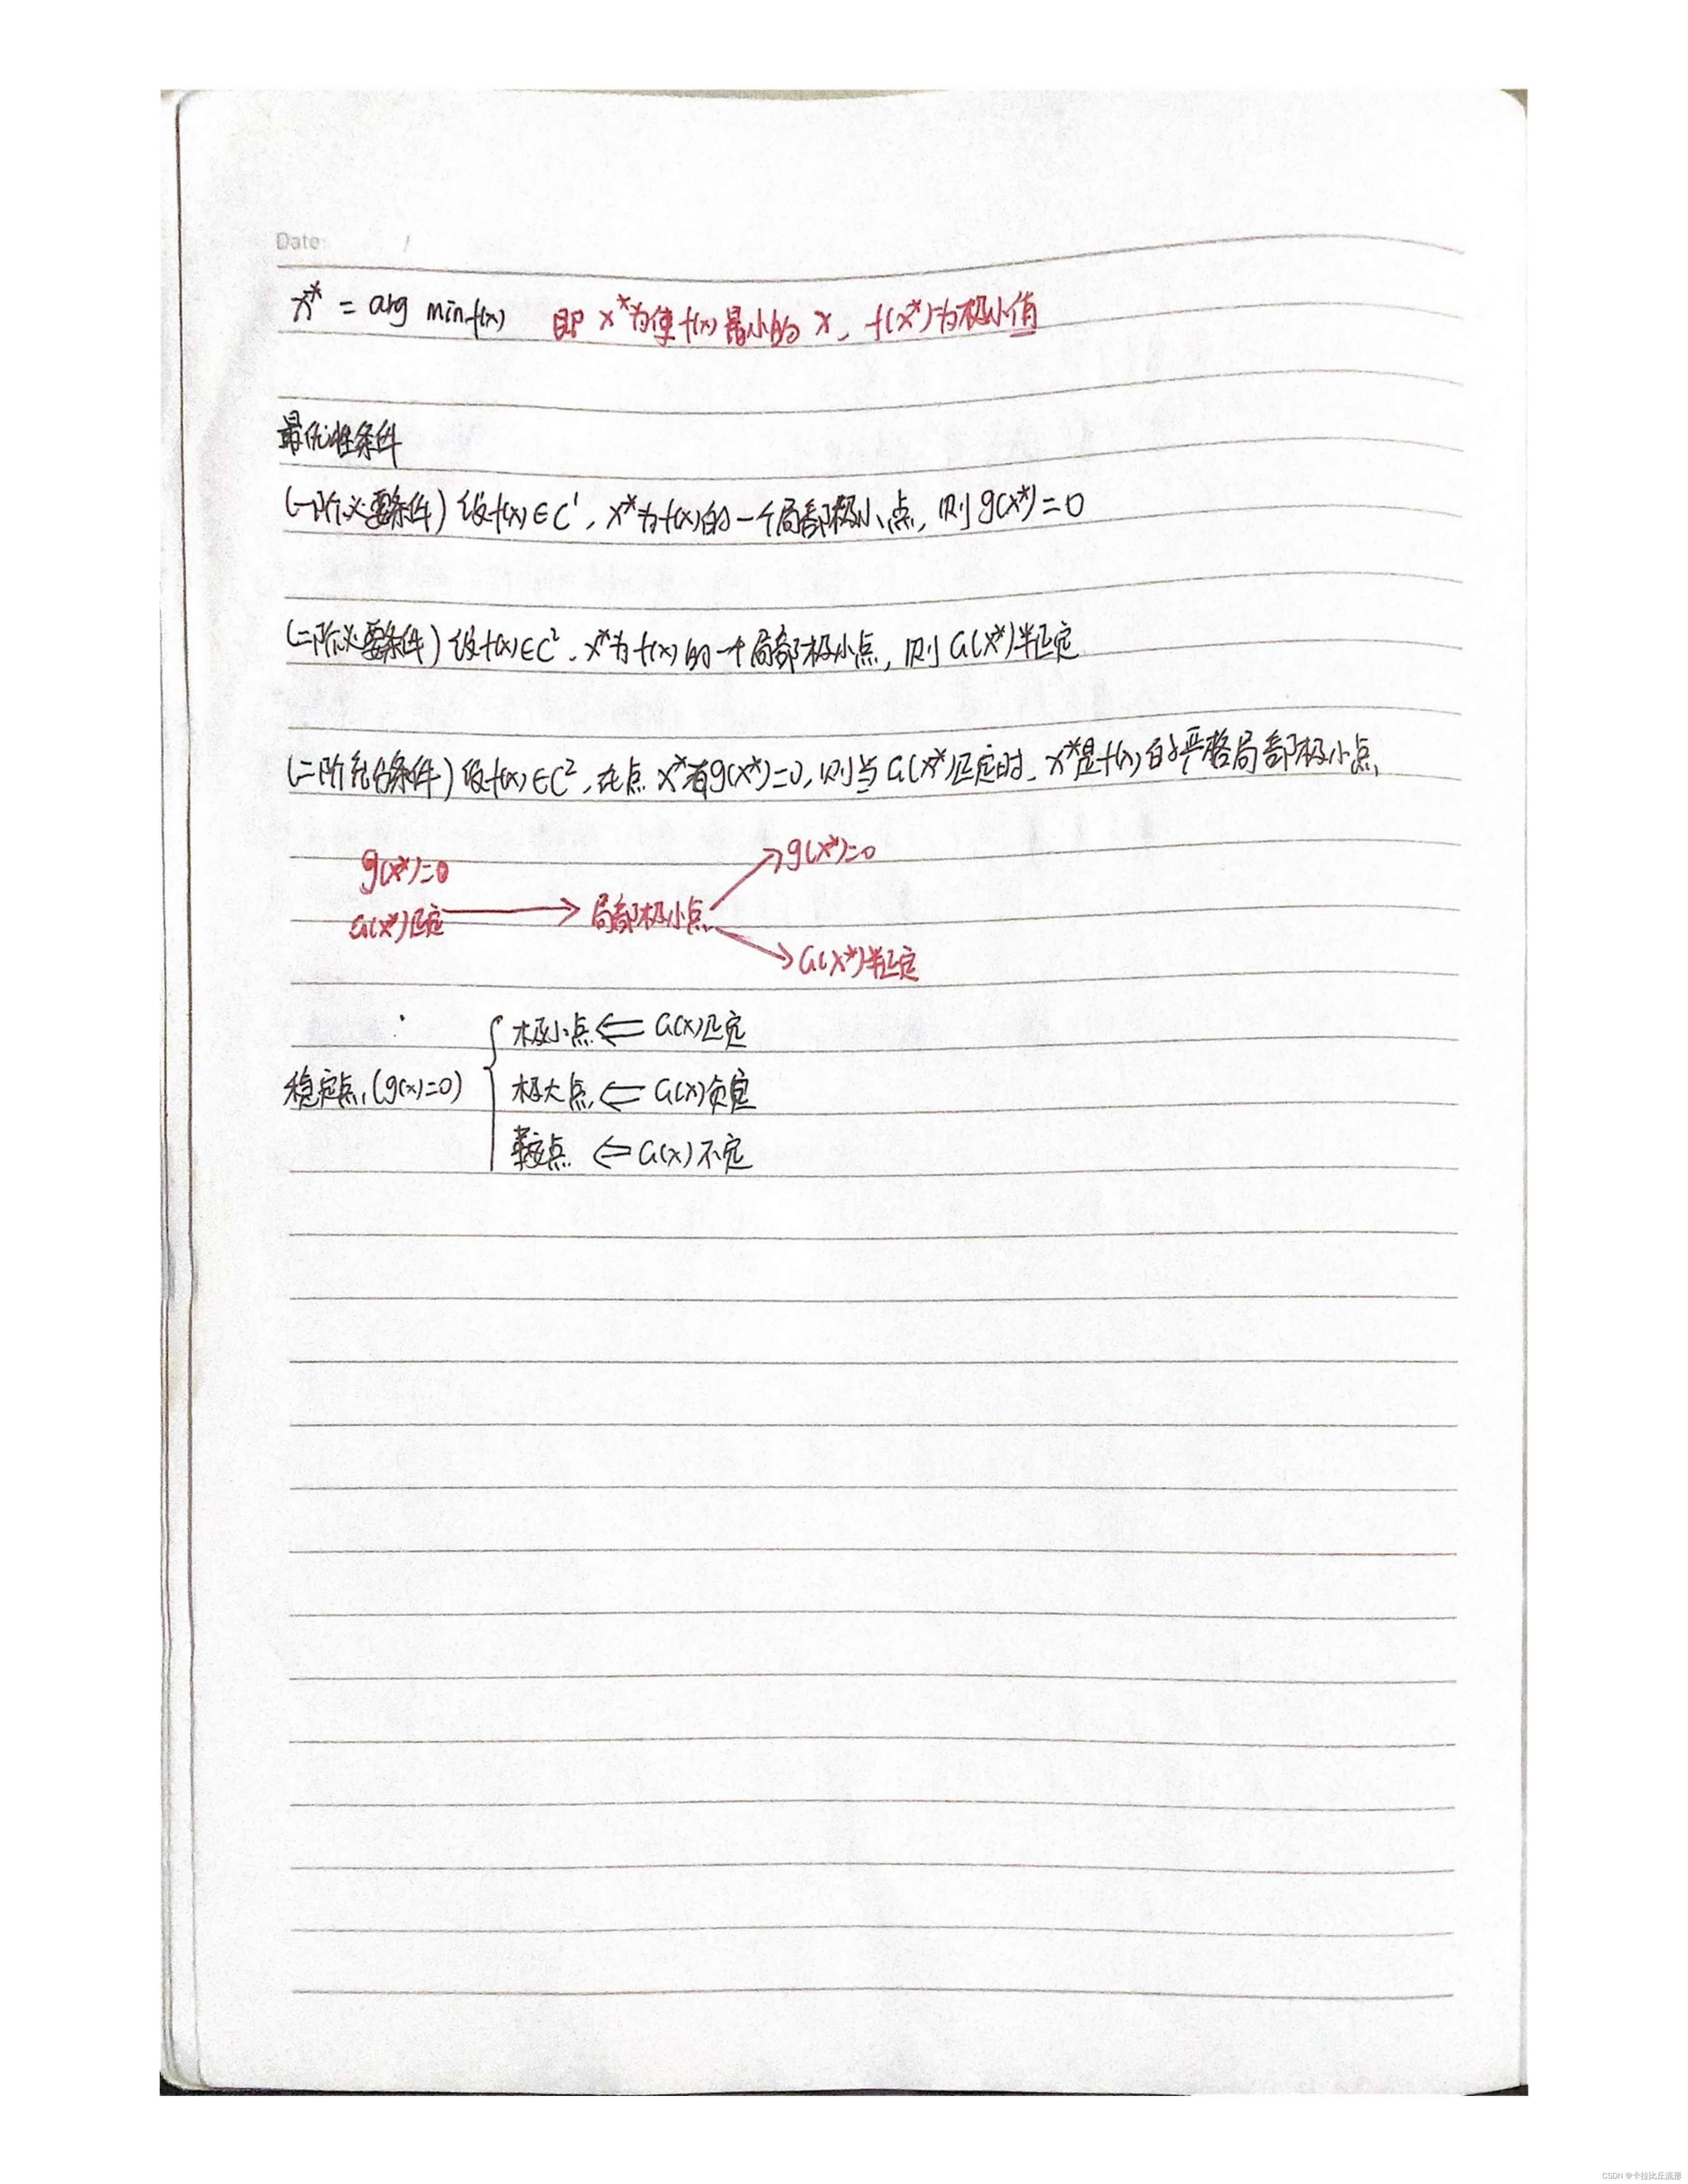 Date: /
x* = arg min f(x) 即 x*为使f(x)最小的 x, f(x*)为极小值
最优性条件
(一阶必要条件) 设f(x)∈C¹, x*为f(x)的一个局部极小点, 则g(x*)=0
(二阶必要条件) 设f(x)∈C², x*为f(x)的一个局部极小点, 则G(x*)半正定
(二阶充分条件) 设f(x)∈C², 在点x*有g(x*)=0, 则当G(x*)正定时, x*是f(x)的严格局部极小点
g(x*)=0
G(x*)正定 → 局部极小点
→ g(x*)=0
→ G(x*)半正定
稳定点 (g(x)=0) {
极小点 ⇐ G(x)正定
极大点 ⇐ G(x)负定
鞍点 ⇐ G(x)不定
CSDN @卡拉比丘流形